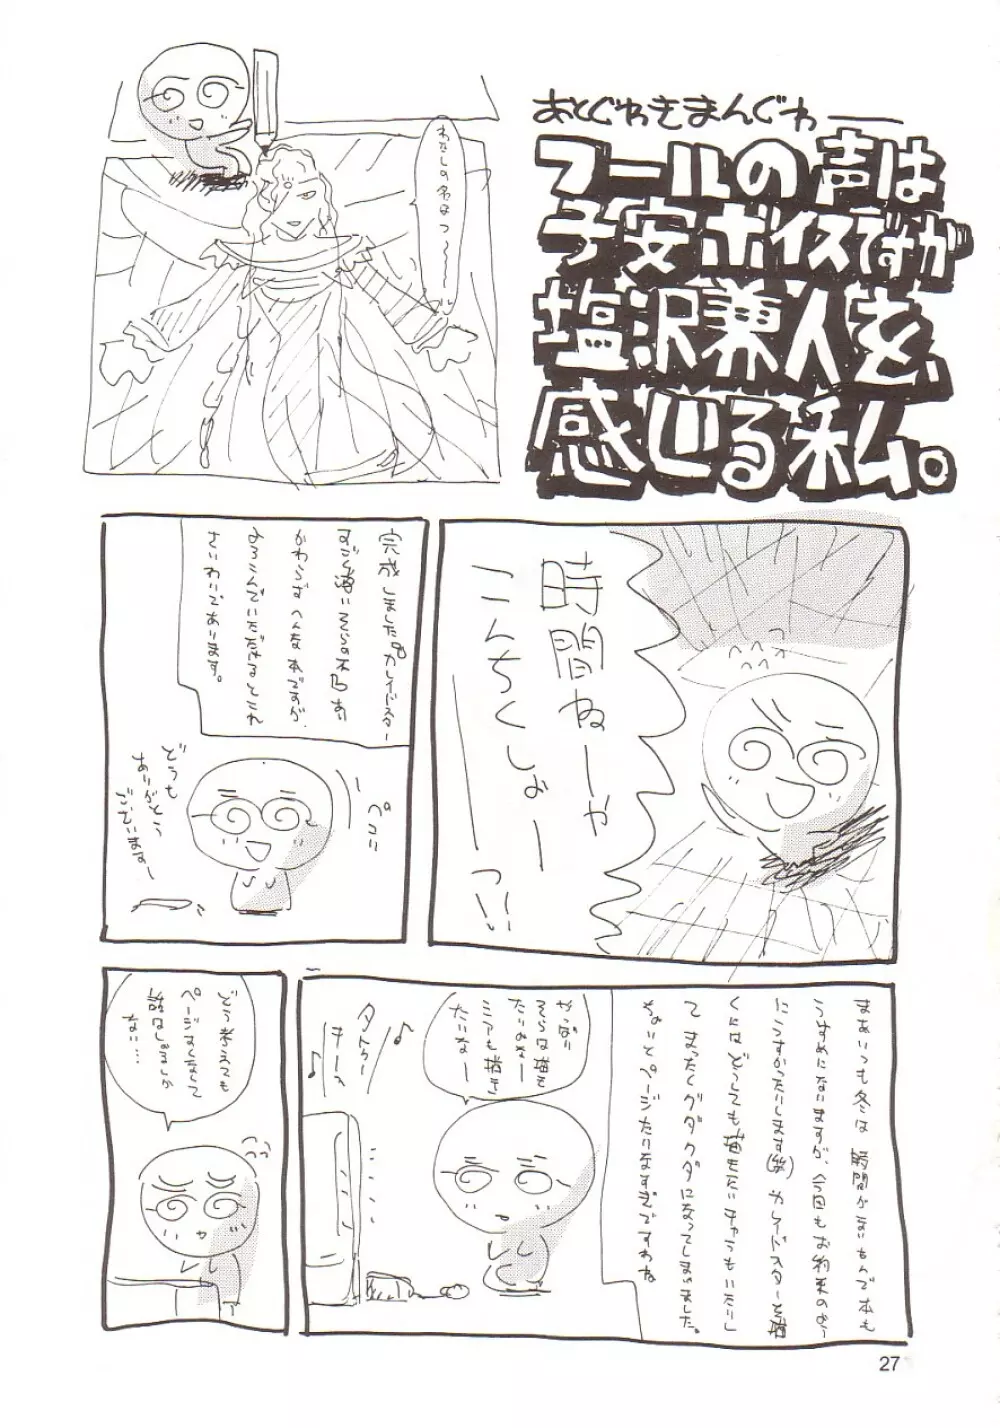 あとがきまんぐゎ——
フールの声は
子安ボイスですが
塩沢兼人を、
感じる私。
わたしの名はフ〜〜〜ル
時間ねーや
こんちくしょーーっ!!
完成しました。カレイドスター
すごく薄い
かわらずへんな本ですが、
よろこんでいただけるとこれ
さいわいであります。
ペコリ
どうも
ありがとう
ございます〜
まあいつも冬は時間がないもんで本も
うすめになりますが、今回もお約束のよう
にうすかったりします(笑)カレイドスターを描
くにはどうしても描きたいキャラもいたりし
て まったくグダグダになってしまいました。
ちょいとページたりなすぎですわね
やっぱ
そらは描き
たいよなー
ミアも描き
たいなー
♪
♪
どう考えても
ページ少なくて
話はしょるしか
ない…
27